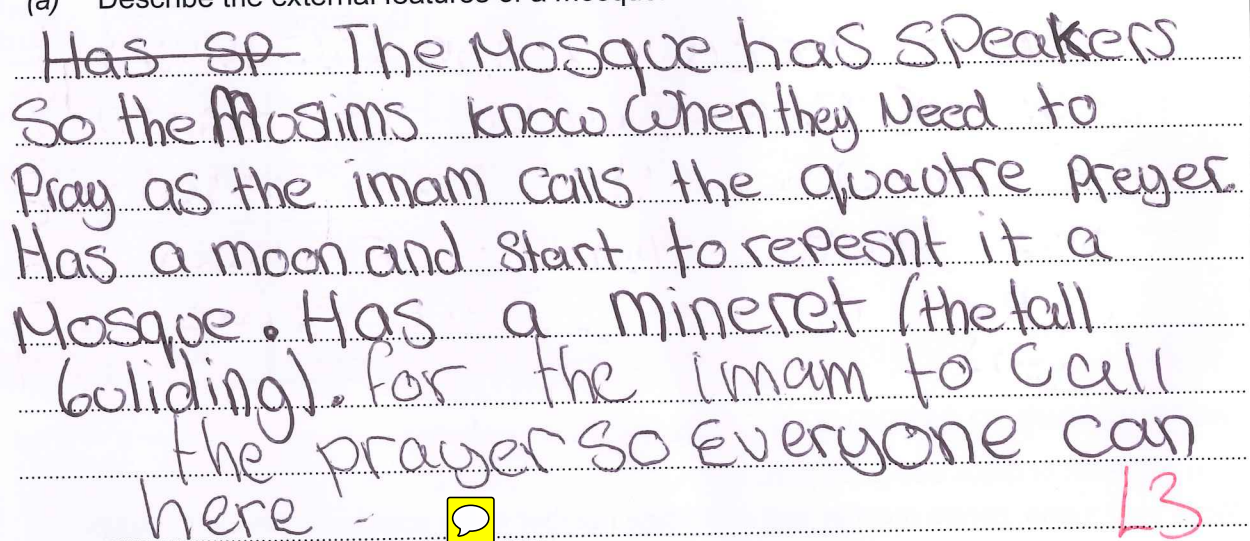 (a) Describe the external features of a mosque.
Has SP The Mosque has speakers
So the Moslims know when they Need to
Pray as the imam calls the quaotre preyer.
Has a moon and Start to repesnt it a
Mosque. Has a mineret (the tall
buliding). for the imam to Call
the prayer So Everyone can
here -
L3